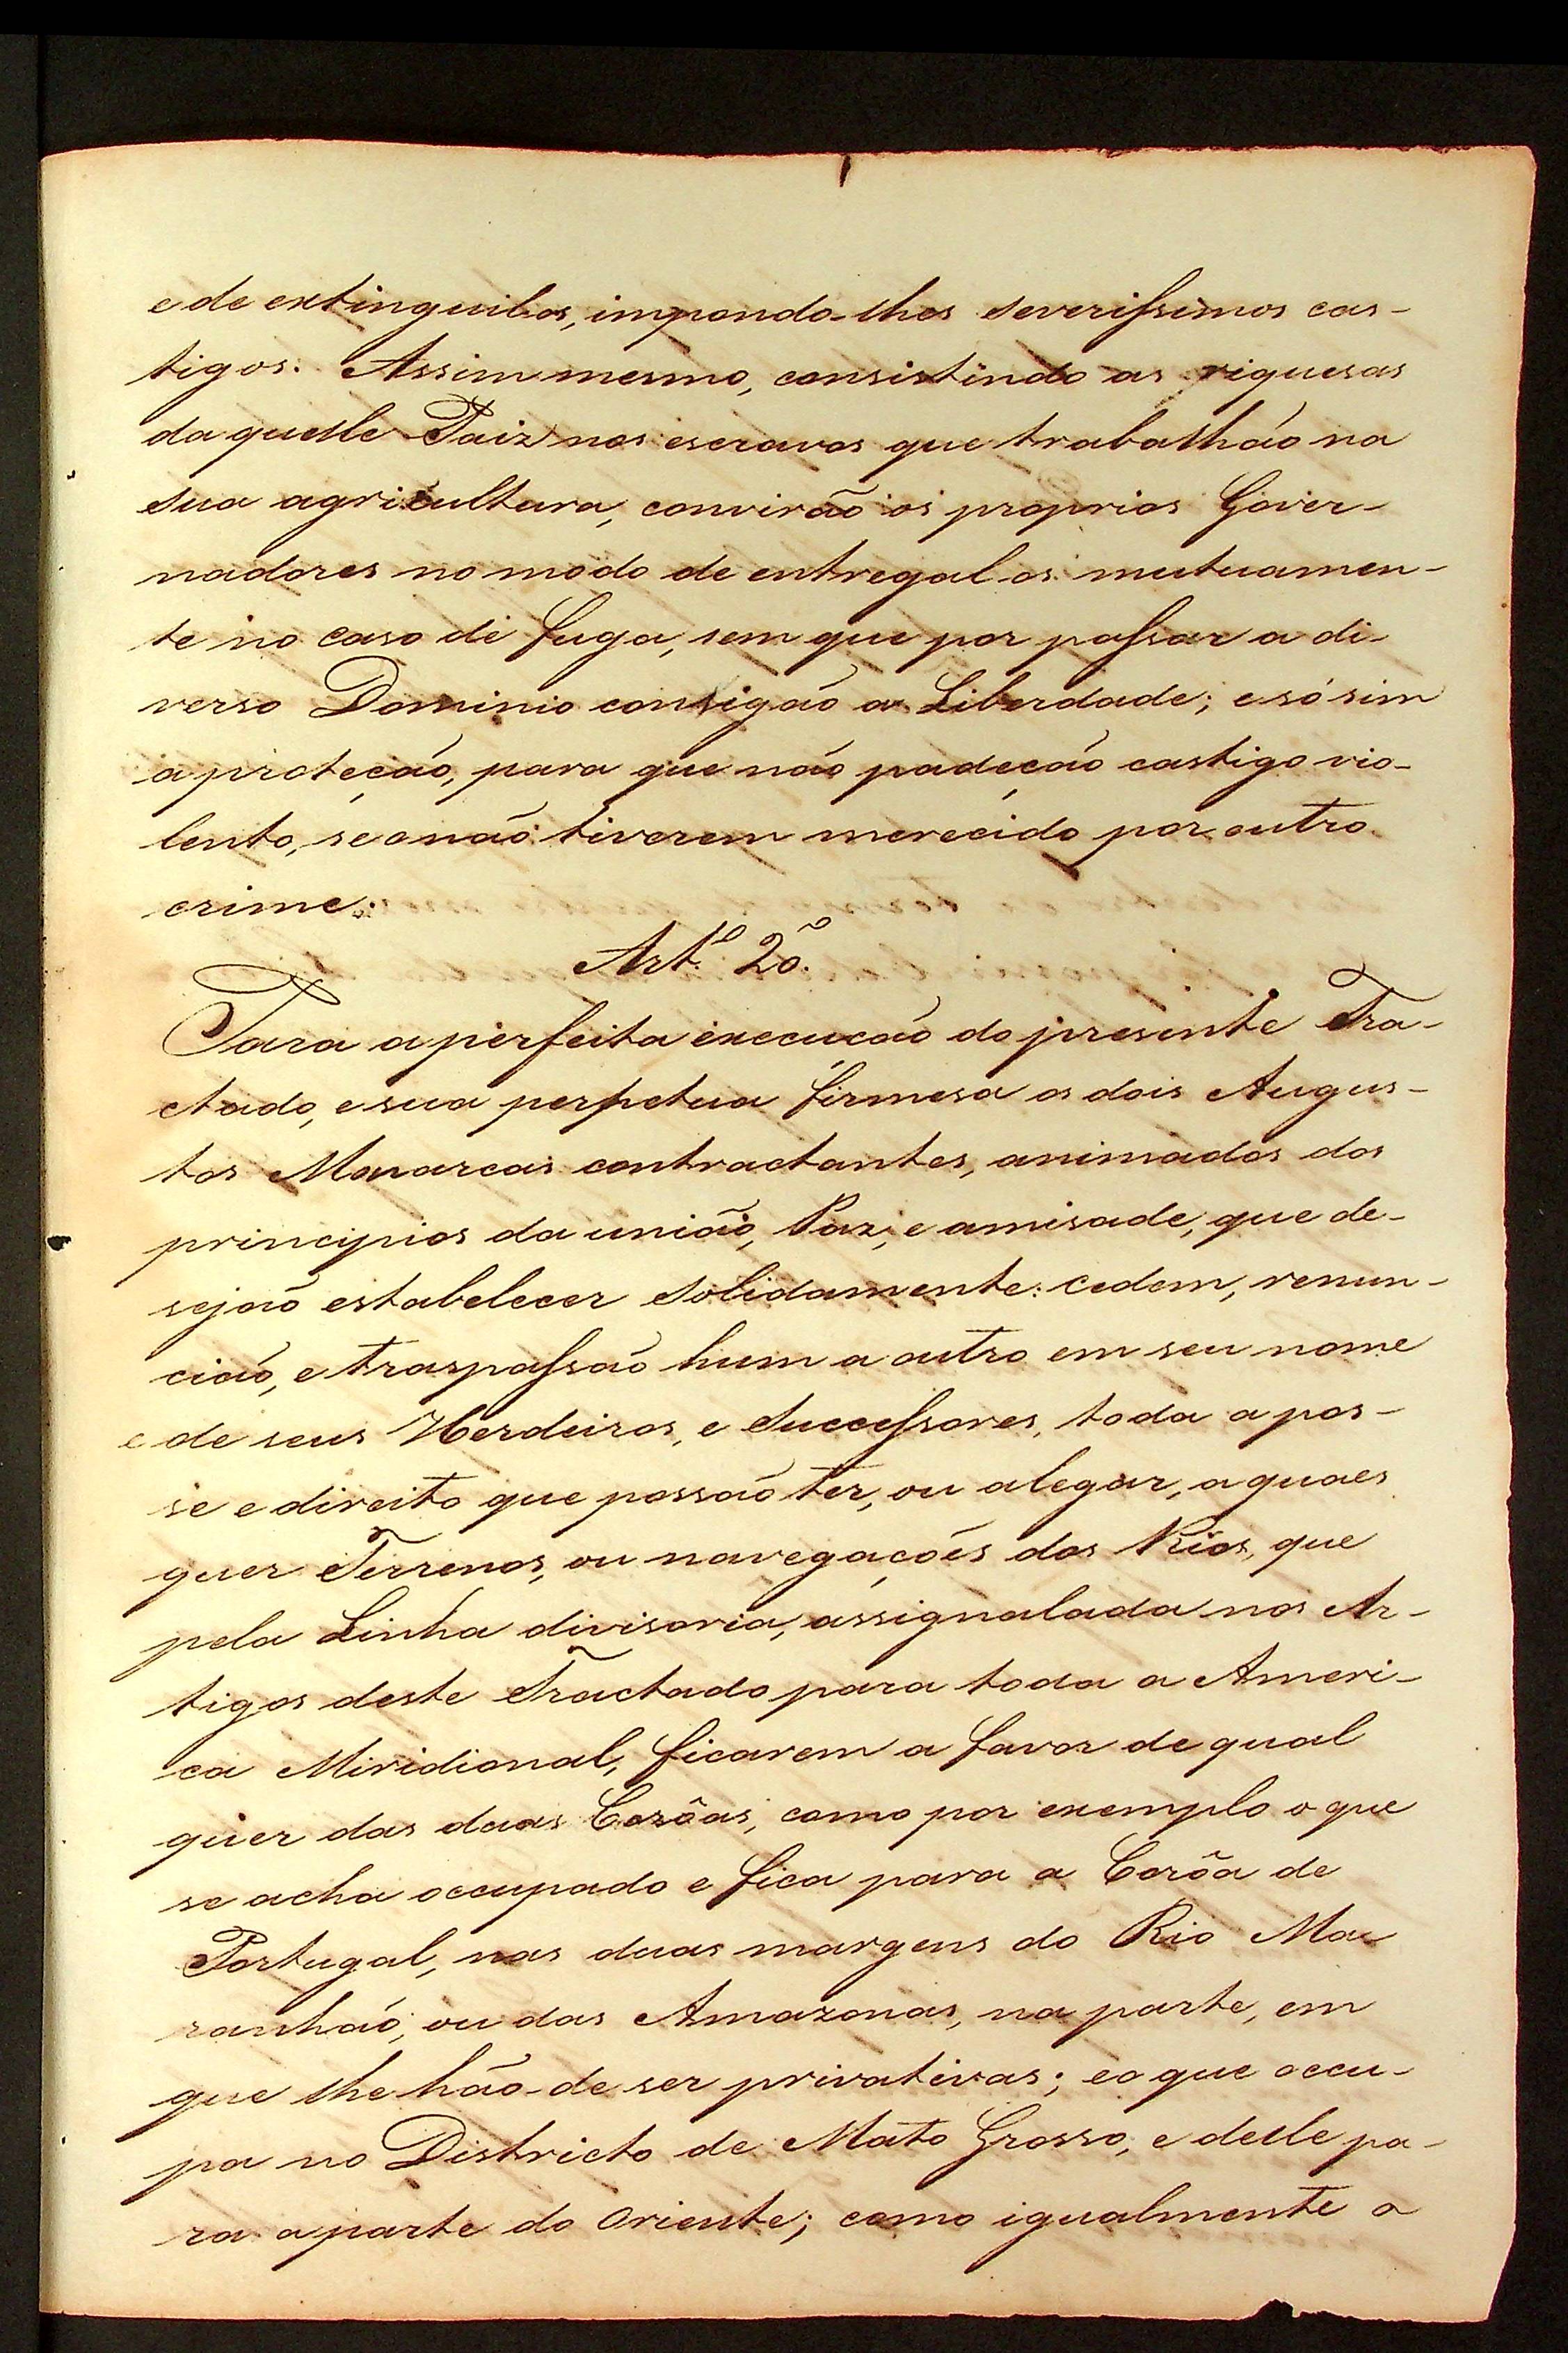 e de extinguilos, impondo-lhes severissimos cas-
tigos. Assim mesmo, consistindo as riquesas
daquelle Paiz nos escravos que trabalhão na
sua agricultura, convirão os proprios Gover-
nadores no modo de entregal os mutuamen-
te no caso de fuga, sem que por passar a di-
verso Dominio consigão a Liberdade; e só sim
a proteção, para que não padeção castigo vio-
lento, se o não tiverem merecido por outro
crime.
Art.º 20.º
Para a perfeita execução do presente Tra-
ctado, e sua perpetua firmesa os dois Augus-
tos Monarcas contractantes, animados dos
principios da união, Paz, e amisade, que de-
sejão estabelecer solidamente: cedem, renun-
cião, e traspassão hum a outro em seu nome
e de seus Herdeiros, e Successores, toda a pos-
se e direito que possão ter, ou alegar, a quaes
quer Terrenos, ou navegações dos Rios, que
pela Linha divisoria, assignalada nos Ar-
tigos deste Tractado para toda a Ameri-
ca Miridional, ficarem a favor de qual
quer das duas Corôas, como por exemplo o que
se acha occupado e fica para a Corôa de
Portugal, nas duas margens do Rio Ma
ranhão, ou das Amazonas, na parte, em
que lhe hão-de ser privativas; e o que occu-
pa no Districto de Mato Grosso, e delle pa-
ra a parte do Oriente; como igualmente o